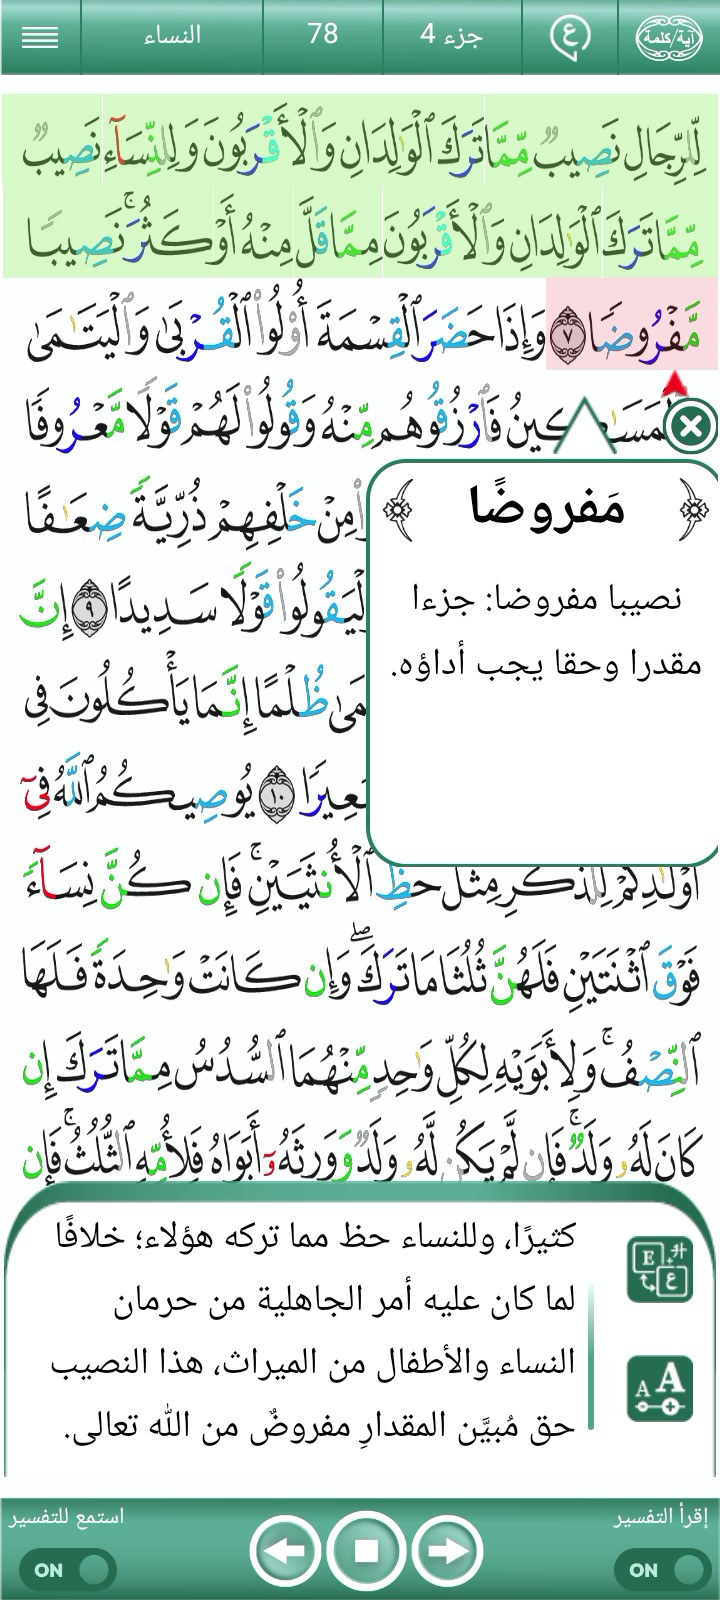 آية/كلمة
ع
جزء 4
78
النساء
لِّلرِّجَالِ نَصِيبٌ مِّمَّا تَرَكَ ٱلْوَٰلِدَانِ وَٱلْأَقْرَبُونَ وَلِلنِّسَآءِ نَصِيبٌ
مِّمَّا تَرَكَ ٱلْوَٰلِدَانِ وَٱلْأَقْرَبُونَ مِمَّا قَلَّ مِنْهُ أَوْ كَثُرَ ۚ نَصِيبًا
مَّفْرُوضًا ٧ وَإِذَا حَضَرَ ٱلْقِسْمَةَ أُو۟لُوا۟ ٱلْقُرْبَىٰ وَٱلْيَتَٰمَىٰ
كِينُ فَٱرْزُقُوهُم مِّنْهُ وَقُولُوا۟ لَهُمْ قَوْلًا مَّعْرُوفًا
مِنْ خَلْفِهِمْ ذُرِّيَّةً ضِعَٰفًا
لْيَقُولُوا۟ قَوْلًا سَدِيدًا ٩ إِنَّ
مَىٰ ظُلْمًا إِنَّمَا يَأْكُلُونَ فِى
عِيرًا ١٠ يُوصِيكُمُ ٱللَّهُ فِىٓ
أَوْلَٰدِكُمْ لِلذَّكَرِ مِثْلُ حَظِّ ٱلْأُنثَيَيْنِ ۚ فَإِن كُنَّ نِسَآءً
فَوْقَ ٱثْنَتَيْنِ فَلَهُنَّ ثُلُثَا مَا تَرَكَ ۖ وَإِن كَانَتْ وَٰحِدَةً فَلَهَا
ٱلنِّصْفُ ۚ وَلِأَبَوَيْهِ لِكُلِّ وَٰحِدٍ مِّنْهُمَا ٱلسُّدُسُ مِمَّا تَرَكَ إِن
كَانَ لَهُۥ وَلَدٌ ۚ فَإِن لَّمْ يَكُن لَّهُۥ وَلَدٌ وَوَرِثَهُۥٓ أَبَوَاهُ فَلِأُمِّهِ ٱلثُّلُثُ ۚ فَإِن
مَفروضًا
نصيبا مفروضا: جزءا
مقدرا وحقا يجب أداؤه.
كثيرًا، وللنساء حظ مما تركه هؤلاء؛ خلافًا
لما كان عليه أمر الجاهلية من حرمان
النساء والأطفال من الميراث، هذا النصيب
حق مُبيَّن المقدارِ مفروضٌ من الله تعالى.
E
ع
A A
إقرأ التفسير
استمع للتفسير
ON
ON